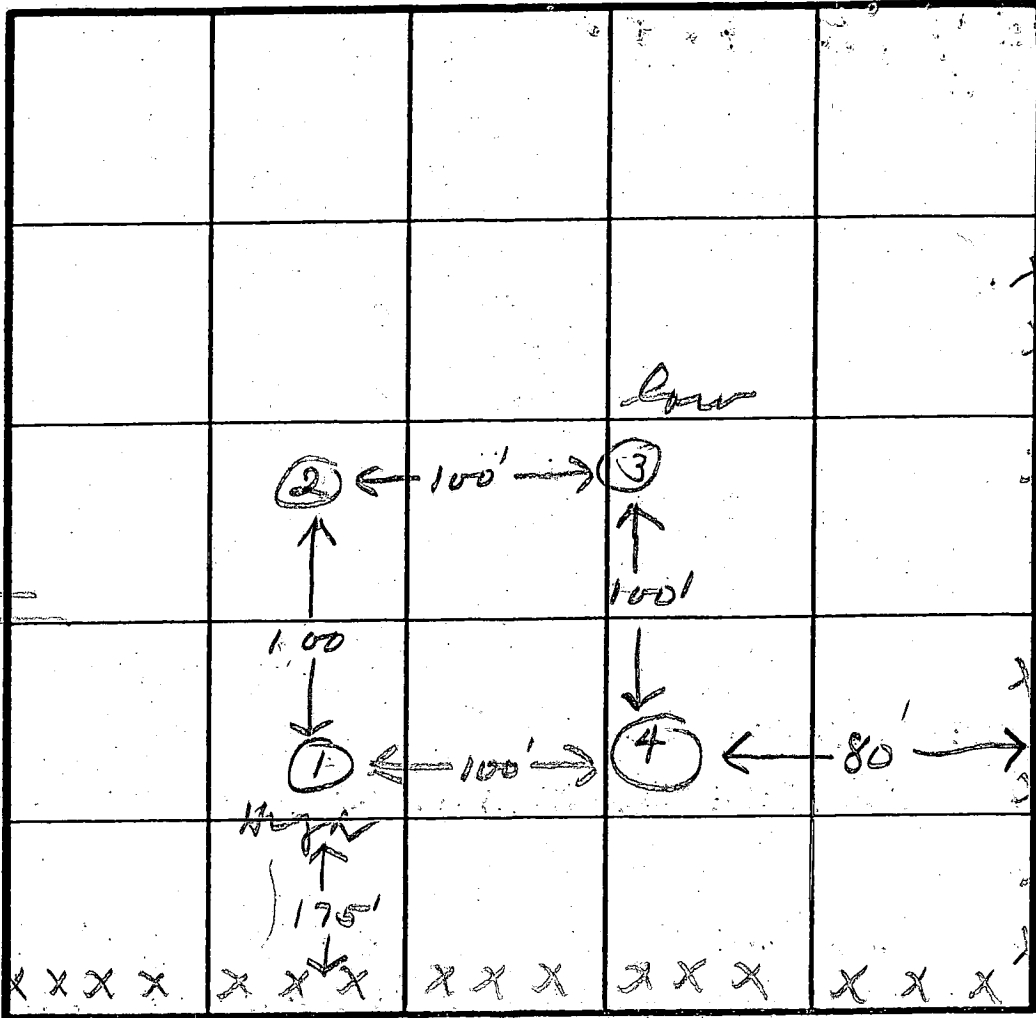 Low
2 100' 3
100'
100
1 100' 4 80'
High
175'
X X X X X X X X X X X X X X X X
X